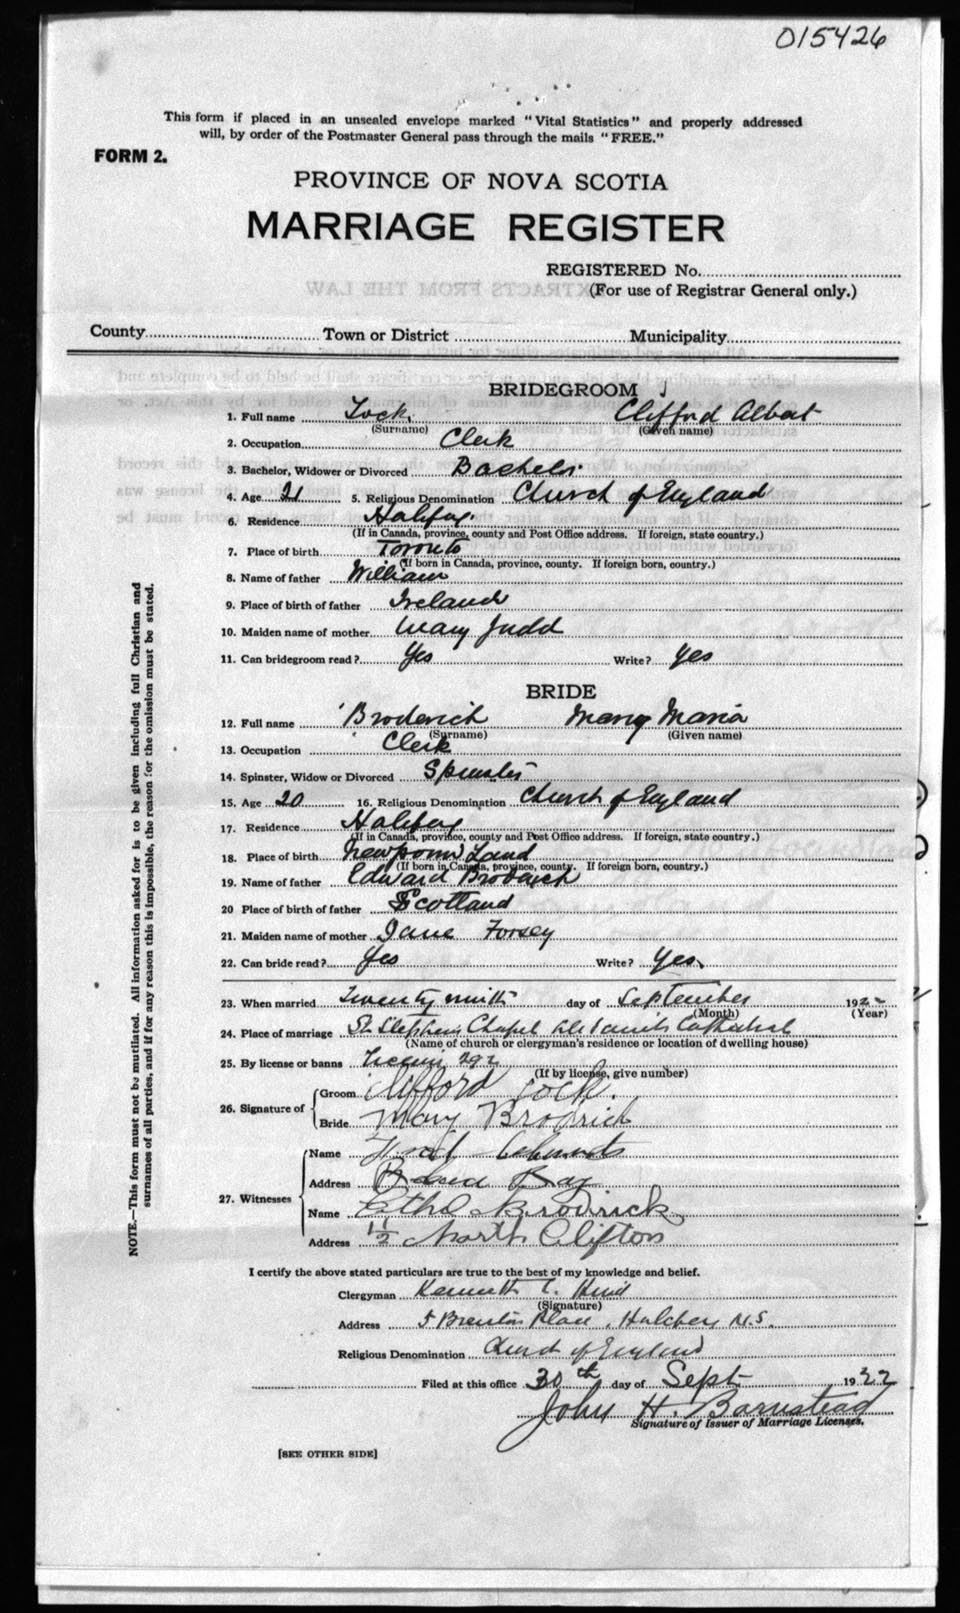 015426
This form if placed in an unsealed envelope marked "Vital Statistics" and properly addressed
will, by order of the Postmaster General pass through the mails "FREE."
FORM 2.
PROVINCE OF NOVA SCOTIA
MARRIAGE REGISTER
REGISTERED No.
(For use of Registrar General only.)
EXTRACTS FROM THE LAW
County Town or District Municipality
BRIDEGROOM
1. Full name Lock Clifford Albert
(Surname) (Given name)
2. Occupation Clerk
3. Bachelor, Widower or Divorced Bachelor
4. Age 21 5. Religious Denomination Church of England
6. Residence Halifax
(If in Canada, province, county and Post Office address. If foreign, state country.)
7. Place of birth Toronto
(If born in Canada, province, county. If foreign born, country.)
8. Name of father William
9. Place of birth of father Ireland
10. Maiden name of mother Mary Judd
11. Can bridegroom read? Yes Write? Yes
BRIDE
12. Full name Broderich Mary Maria
(Surname) (Given name)
13. Occupation Clerk
14. Spinster, Widow or Divorced Spinster
15. Age 20 16. Religious Denomination Church of England
17. Residence Halifax
(If in Canada, province, county and Post Office address. If foreign, state country.)
18. Place of birth Newfound Land
(If born in Canada, province, county. If foreign born, country.)
19. Name of father Edward Broderich
20 Place of birth of father Scotland
21. Maiden name of mother Jane Forsey
22. Can bride read? Yes Write? Yes
23. When married Twenty ninth day of September 1922
(Month) (Year)
24. Place of marriage St Stephens Chapel All Saints Cathedral
(Name of church or clergyman's residence or location of dwelling house)
25. By license or banns 292
(If by license, give number)
26. Signature of Groom Clifford Lock.
Bride Mary Brodrick
27. Witnesses Name
Address Bay
Name Ethel Brodrick
Address 11½ North Clifton
I certify the above stated particulars are true to the best of my knowledge and belief.
Clergyman Kenneth C. Hind
(Signature)
Address 5 Brenton Place, Halifax N.S.
Religious Denomination Church of England
Filed at this office 30th day of Sept 1922
John H. Barnstead
Signature of Issuer of Marriage Licenses.
[SEE OTHER SIDE]
NOTE.—This form must not be mutilated. All information asked for is to be given including full Christian and
surnames of all parties, and if for any reason this is impossible, the reason for the omission must be stated.